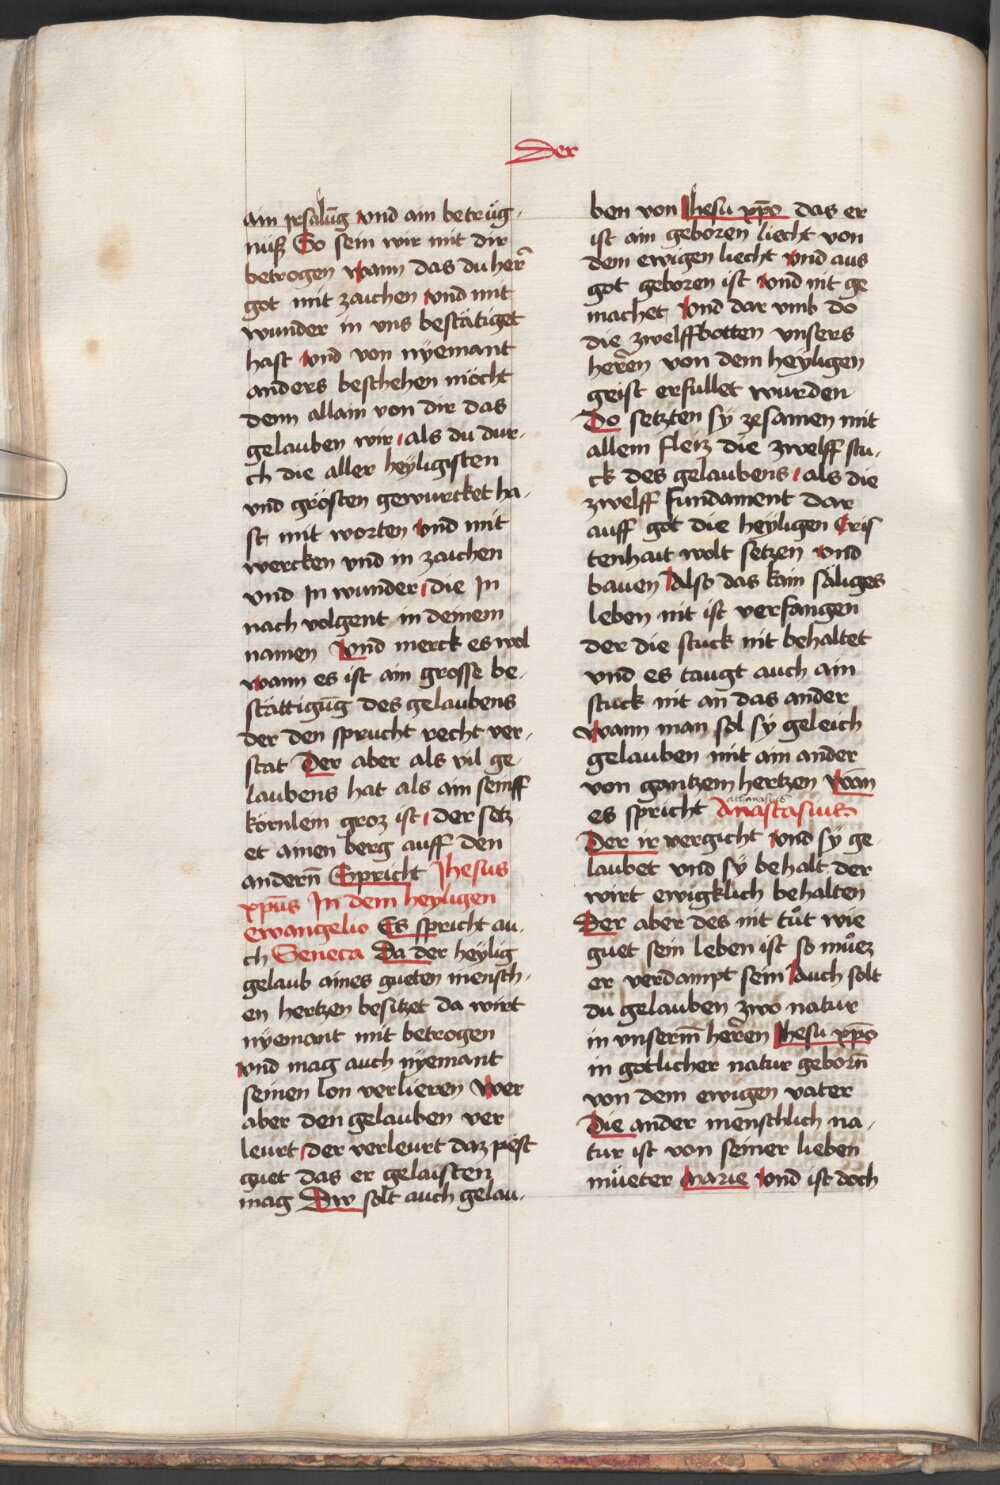 Der
ain jrsalūg vnd ain betrůg¬
nüß So sein wir mit dir
betrogen wann das du her̄
got mit zaichen vnd mit
wunder in vns bestätiget
hast vnd von nÿemant
anders beschehen möcht
denn allain von dir das
gelauben wir als du dur¬
ch die aller heÿligisten
vnd grösten gewurcket ha¬
st mit worten vnd mit
wercken vnd in zaichen
vnd Jn wunder die Jn
nach volgent in deinem
namen Vnd merck es wol
wann es ist ain grosse be¬
stättigūg des gelaubens
der den spruch recht ver¬
stat Der aber als vil ge
laubens hat als ain senff
körnlein groz ist der setz¬
et ainen berg auff den
andern̄ Spricht Jhesus
xp̄us Jn dem heyligen
ewangelio Es spricht au¬
ch Seneca Da der heÿlig
gelaub aines gueten mensch¬
en hertzen besitzet da wirt
nÿemant mit betrogen
vnd mag auch nÿemant
seinen lon verlieren Wer
aber den gelauben ver
leurt der verleurt daz pest
guet das er gelaisten
mag Dw solt auch gelau¬
ben von Jhesu xp̄o das er
ist ain geboren liecht von
dem ewigen liecht vnd aus
got geboren ist vnd nit ge
machet Vnd dar vmb do
die zwelffbotten vnsers
herēn von dem heÿligen
geist erfullet wurden
Do setzten sÿ zesamen mit
allem fleiz die zwelff stu¬
ck des gelaubens als die
zwelff fundament dar
auff got die heÿligen Cris
tenhait wolt setzen vnd
bauen Also das kain säliges
leben nit ist verfangen
der die stuck nit behaltet
vnd es taugt auch ain
stuck nit an das ander
wann man sol sÿ geleich
gelauben mit ain ander
von gantzem hertzen Wan̄
athanasius
es spricht Anastasius
Der ir vergicht vnd sÿ ge¬
laubet vnd sÿ behalt der
wirt ewigklich behalten
Der aber des nit tůt wie
guet sein leben ist so můez
er verdampt sein Auch solt
du gelauben zwo natur
in vnserm̄ herēn Jhesu xp̄o
in gotlicher natur geborn̄
von dem ewigen vater
Die ander menschlich na¬
tur ist von seiner lieben
müeter Marie Vnd ist doch